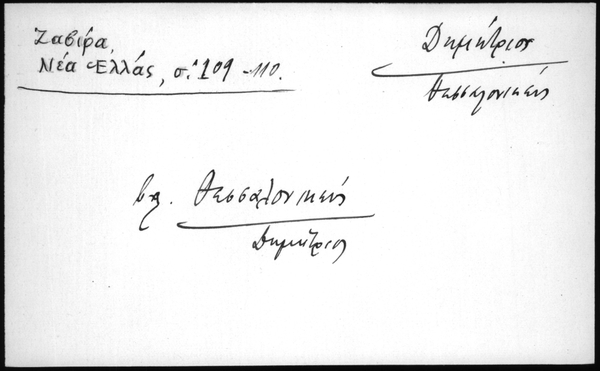 Ζαβίρα,
Νέα Ἑλλάς, σ. 109-110.
Δημήτριος
Θεσσαλονικεύς
βλ. Θεσσαλονικεύς
Δημήτριος